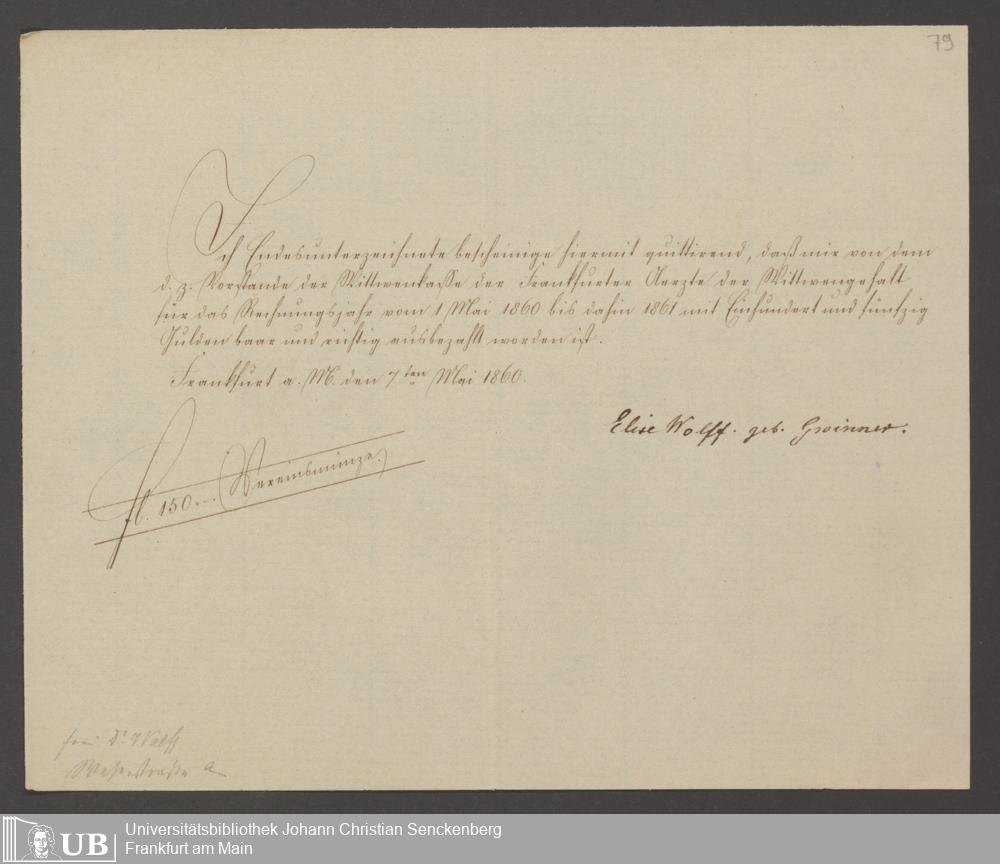 79
Ich Endesunterzeichnete bescheinige hiermit quittirend, daß mir von dem
d. z. Vorstande der Wittwenkasse der Frankfurter Aerzte der Wittwengehalt
für das Rechnungsjahr vom 1 Mai 1860 bis dahin 1861 mit Einhundert und fünfzig
Gulden baar und richtig ausbezahlt worden ist.
Frankfurt a. M. den 7ten Mai 1860.
Elise Wolff. geb. Gwinner.
fl. 150.— (Vereinsmünze.)
Frau Dr. Wolff
Weserstraße
UB
Universitätsbibliothek Johann Christian Senckenberg
Frankfurt am Main